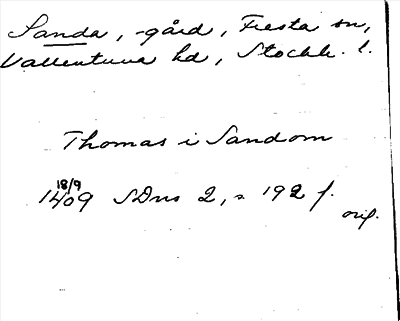 Sanda, -gård, Fresta sn,
Vallentuna hd, Stockh. l.
Thomas i Sandom
18/9
1409 SDns 2, s 192 f.
orig.